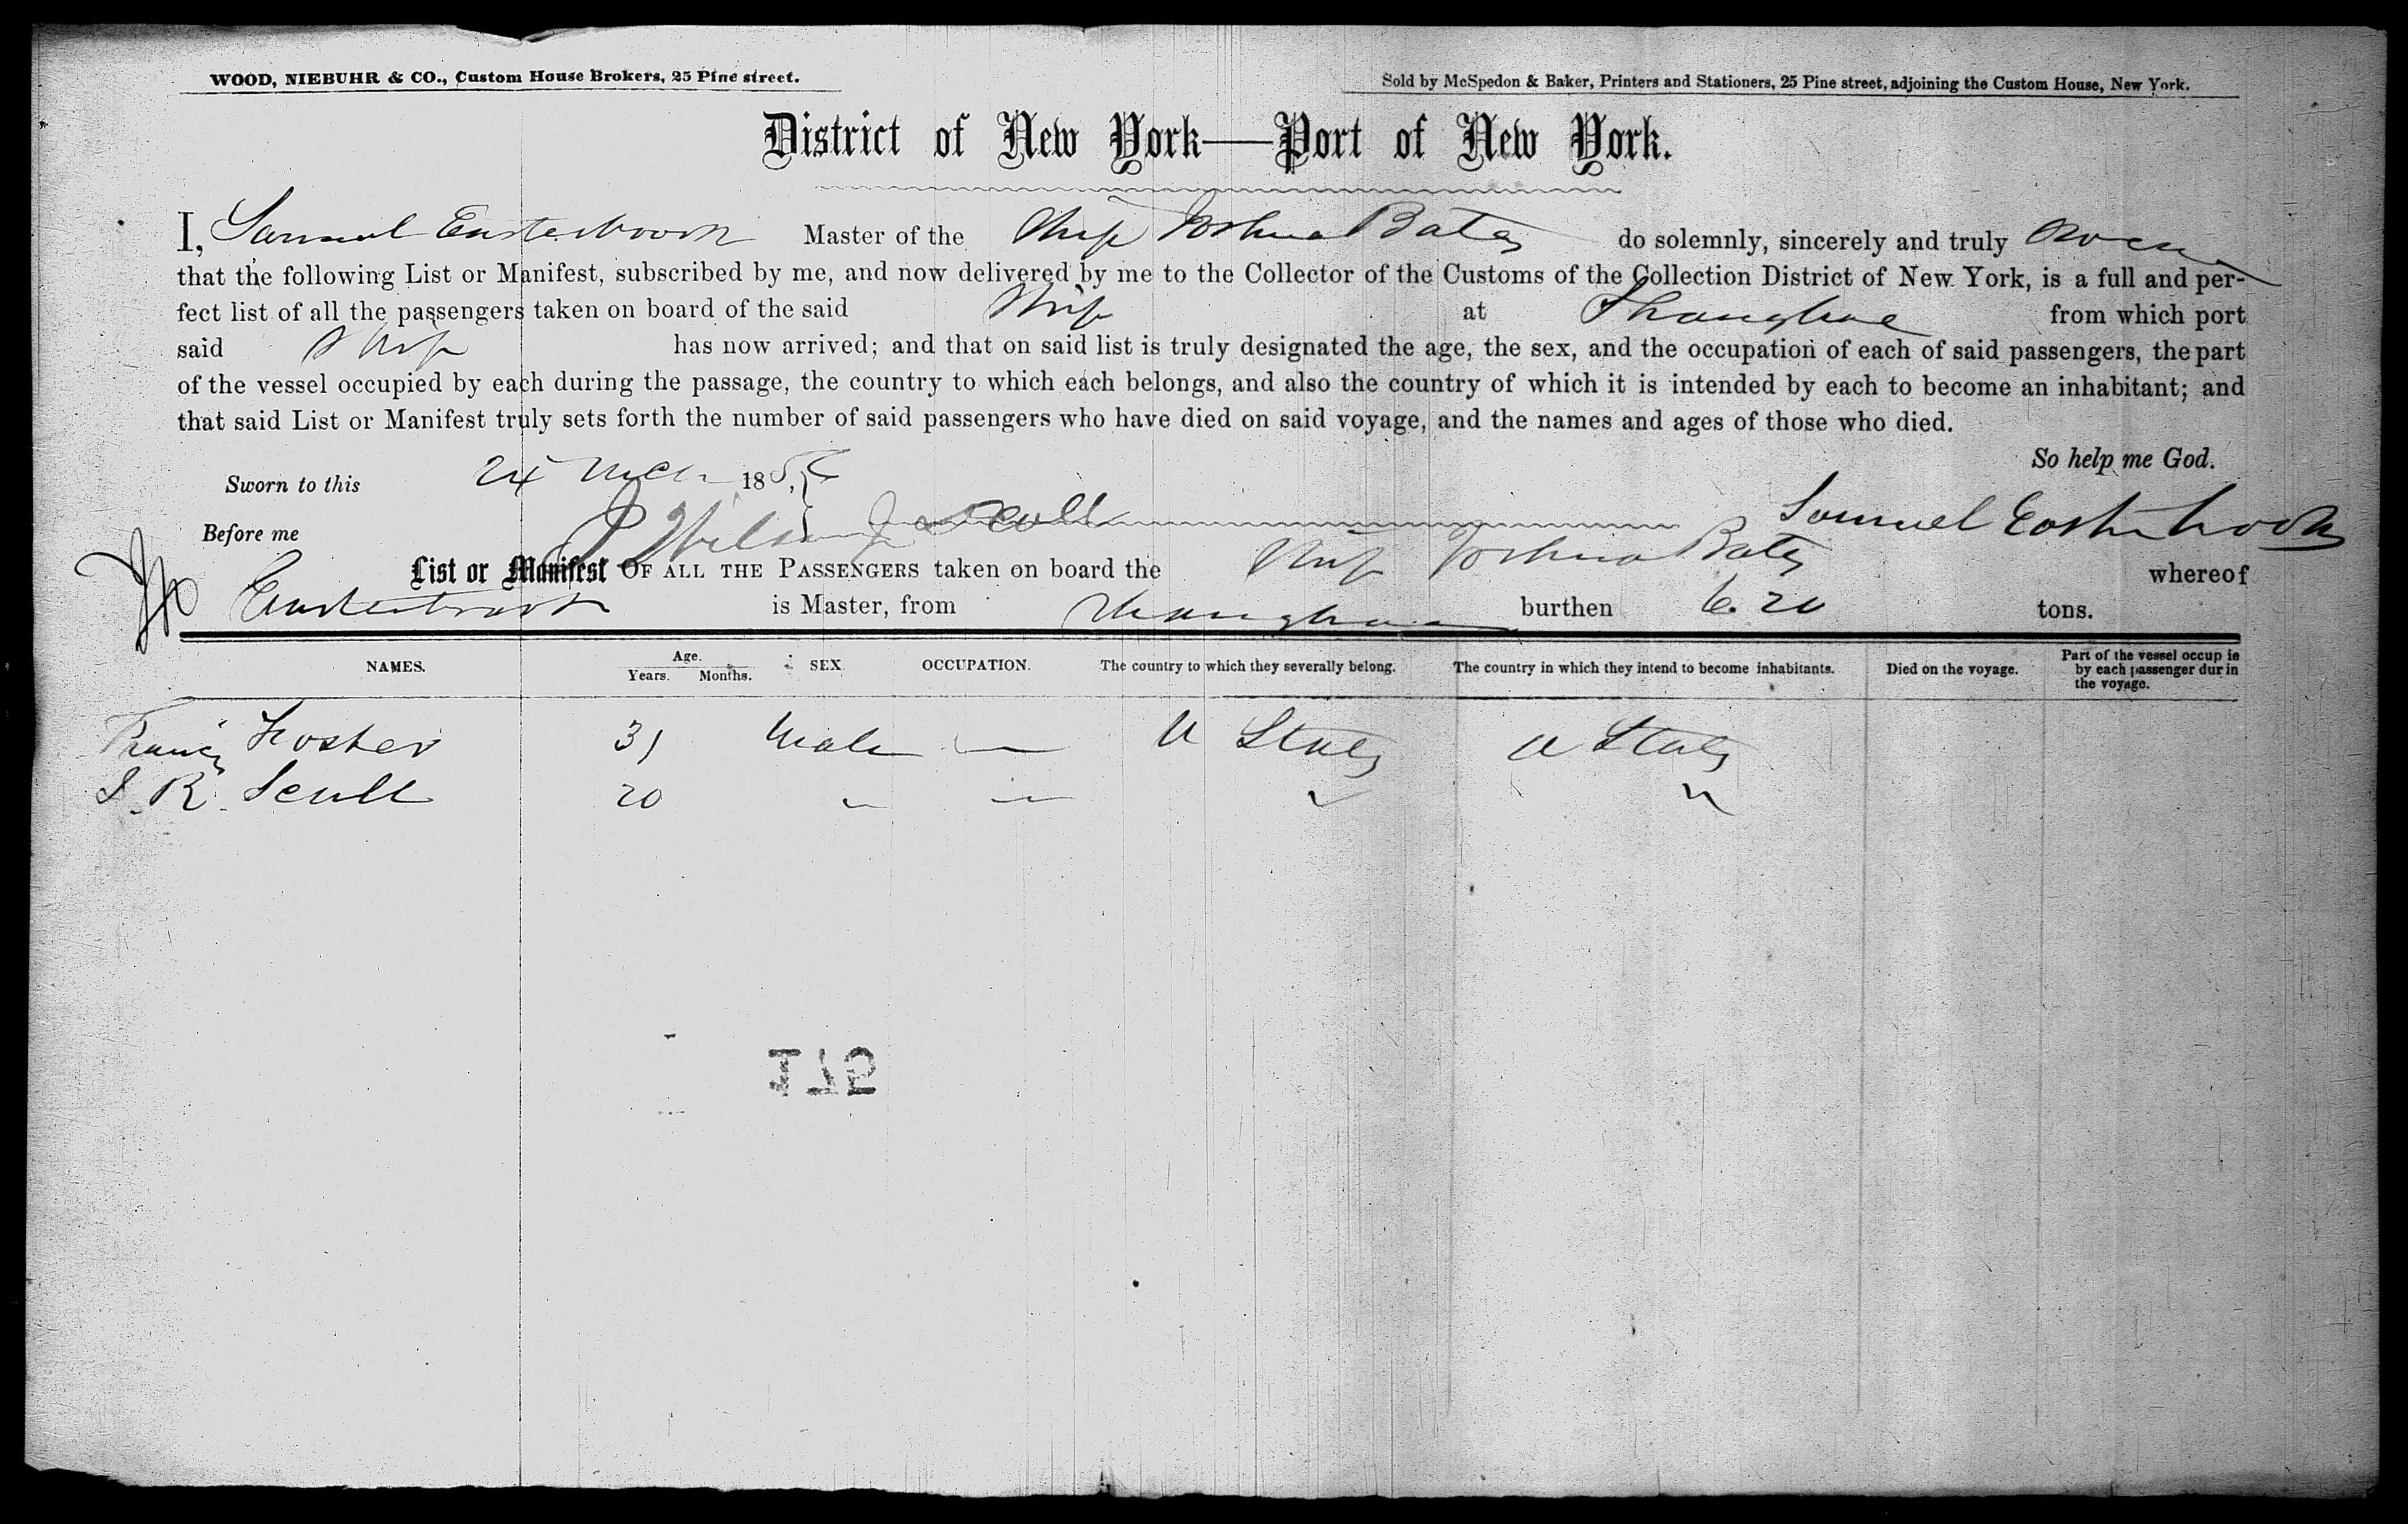 WOOD, NIEBUHR & CO., Custom House Brokers, 25 Pine street.
Sold by McSpedon & Baker, Printers and Stationers, 25 Pine street, adjoining the Custom House, New York.
District of New York—Port of New York.
I, Samuel Easterbrook Master of the Ship Joshua Bates do solemnly, sincerely and truly swear
that the following List or Manifest, subscribed by me, and now delivered by me to the Collector of the Customs of the Collection District of New York, is a full and per-
fect list of all the passengers taken on board of the said Ship at Shanghae from which port
said Ship has now arrived; and that on said list is truly designated the age, the sex, and the occupation of each of said passengers, the part
of the vessel occupied by each during the passage, the country to which each belongs, and also the country of which it is intended by each to become an inhabitant; and
that said List or Manifest truly sets forth the number of said passengers who have died on said voyage, and the names and ages of those who died.
So help me God.
Sworn to this 24 Mch 185
Before me Samuel Easterbrook
List or Manifest OF ALL THE PASSENGERS taken on board the Ship Joshua Bates whereof
Easterbrook is Master, from Shanghae burthen 620 tons.
NAMES. Age. Years. Months. SEX OCCUPATION. The country to which they severally belong. The country in which they intend to become inhabitants. Died on the voyage. Part of the vessel occup ie by each passenger dur in the voyage.
Francis Foster 31 Male — U States U States
S. R. Scull 20 " — " "
172